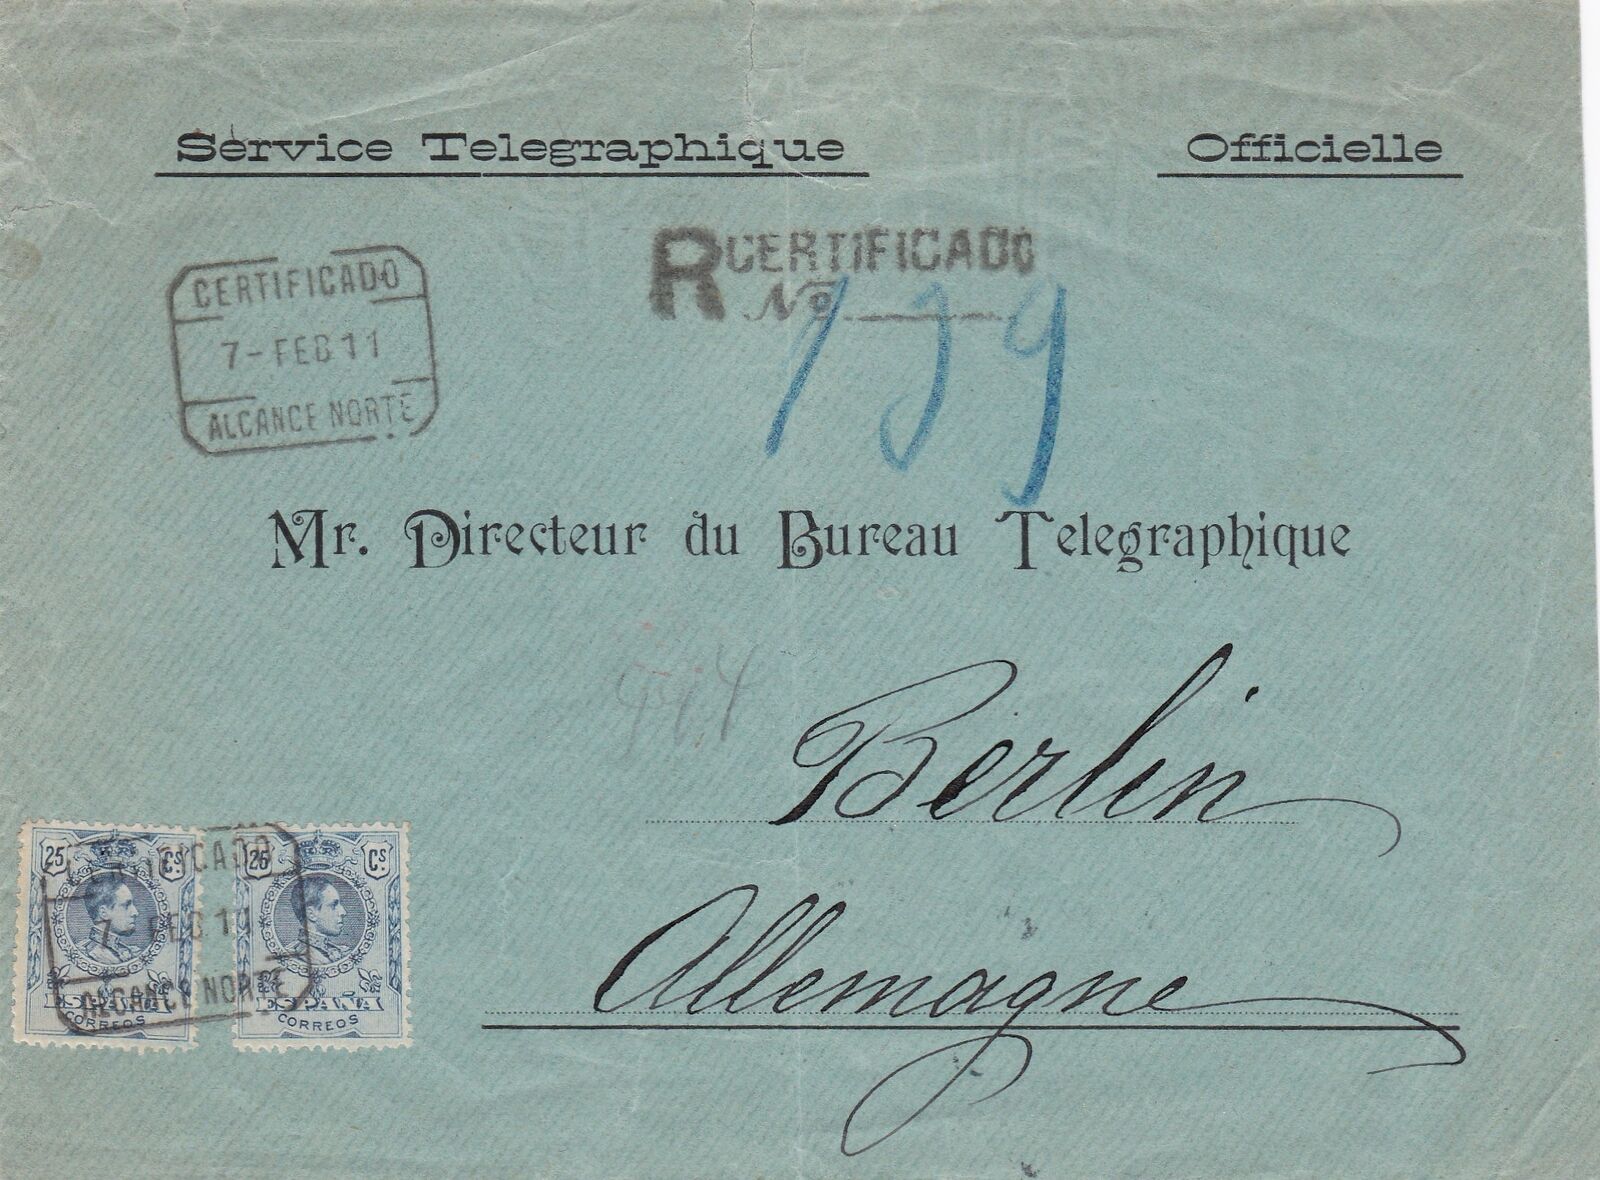 Service Telegraphique Officielle
CERTIFICADO
7-FEB 11
ALCANCE NORTE
R CERTIFICADO
No 199
Mr. Directeur du Bureau Telegraphique
Berlin
Allemagne
25 Cs
ESPAÑA
CORREOS
25 Cs
ESPAÑA
CORREOS
CERTIFICADO
7 FEB 11
ALCANCE NORTE